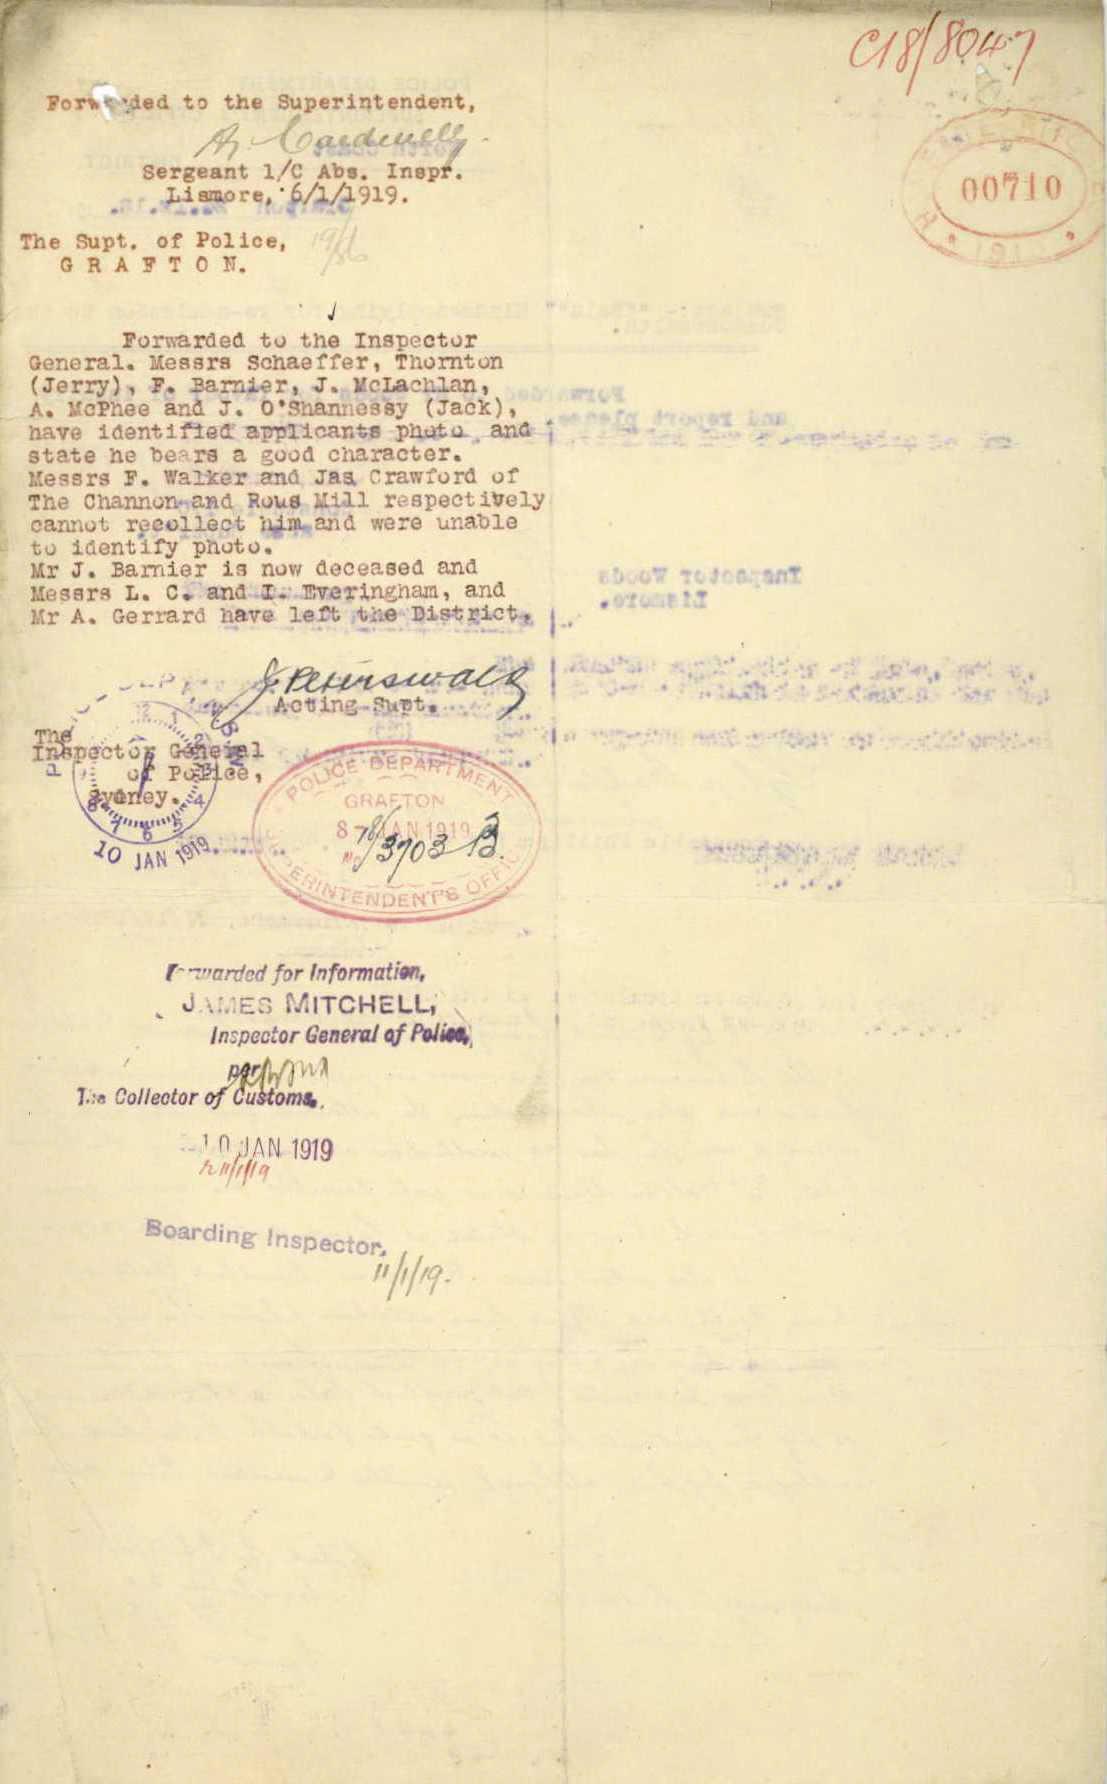 C18/8047
Forwarded to the Superintendent,
Cardwell
Sergeant 1/C Abs. Inspr.
Lismore, 6/1/1919.
00710
The Supt. of Police,
G R A F T O N.
Forwarded to the Inspector
General. Messrs Schaeffer, Thornton
(Jerry), F. Barnier, J. McLachlan,
A. McPhee and J. O'Shannessy (Jack),
have identified applicants photo and
state he bears a good character.
Messrs F. Walker and Jas Crawford of
The Channon and Rous Mill respectively
cannot recollect him and were unable
to identify photo.
Mr J. Barnier is now deceased and
Messrs L. C. and I. Everingham, and
Mr A. Gerrard have left the District.
Acting Supt.
The
Inspector General
of Police,
Sydney.
10 JAN 1919
POLICE DEPARTMENT
GRAFTON
8 - JAN 1919
No 3703
SUPERINTENDENT'S OFFICE
Forwarded for Information,
JAMES MITCHELL,
Inspector General of Police,
per
The Collector of Customs.
10 JAN 1919
11/1/19
Boarding Inspector.
11/1/19.